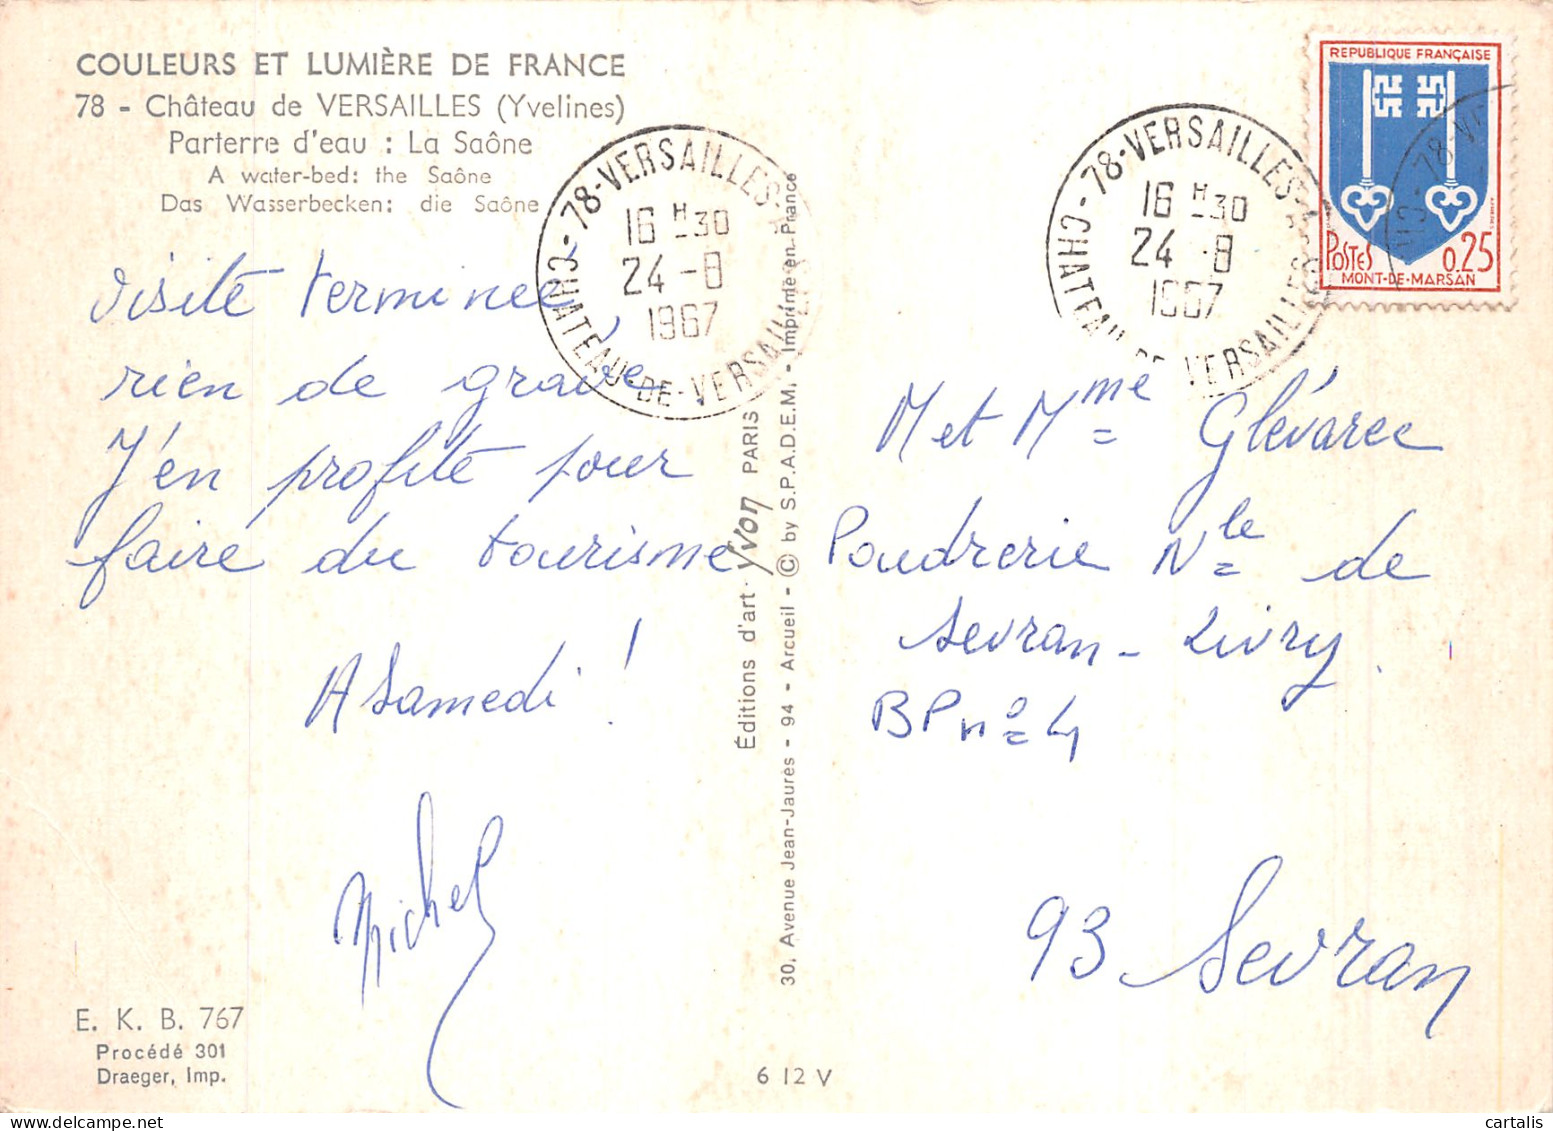 COULEURS ET LUMIÈRE DE FRANCE
78 - Château de VERSAILLES (Yvelines)
Parterre d'eau : La Saône
A water-bed: the Saône
Das Wasserbecken: die Saône
visite terminée,
rien de grave
J'en profite pour
faire du tourisme
A Samedi !
Michel
E. K. B. 767
Procédé 301
Draeger, Imp.
78-VERSAILLES
16 H 30
24 - 8
1967
CHATEAU-DE-VERSAILLES
Éditions d'art Yvon PARIS
30, Avenue Jean-Jaurès - 94 - Arcueil - © by S.P.A.D.E.M. - Imprimé en France
6 12 V
78-VERSAILLES
16 H 30
24 - 8
1967
CHATEAU-DE-VERSAILLES
REPUBLIQUE FRANÇAISE
POSTES 0,25
MONT-DE-MARSAN
M et Mme Glévarec
Poudrerie Nle de
Sevran - Livry
BP n° 4
93 Sevran
cartalis